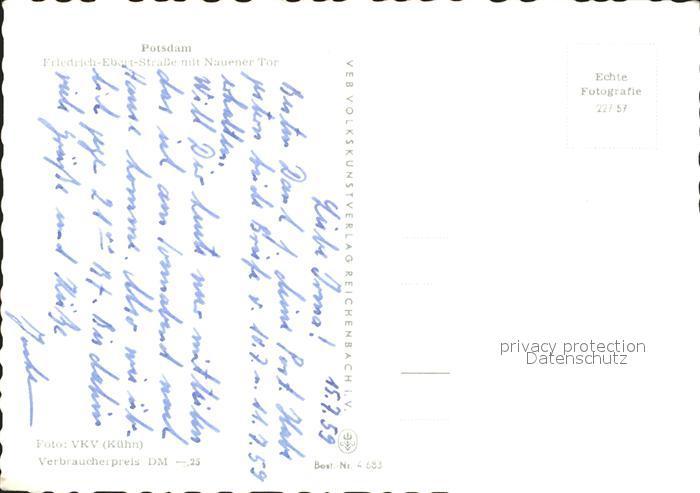 Potsdam
Friedrich-Ebert-Straße mit Nauener Tor
Liebe Irma! 15.7.59
Besten Dank f. deine Post. Habe
gestern beide Briefe v. 10.7 u. 11.7.59
erhalten.
Will Dir heute nur mitteilen
das ich am Sonnabend nach
Hause komme. Also wie üb-
lich gegen 21 Bf. Bis dahin
viele Grüße und Küße
VEB VOLKSKUNSTVERLAG REICHENBACH i. V.
Echte
Fotografie
227 57
privacy protection
Datenschutz
Foto: VKV (Kühn)
Verbraucherpreis DM —,25
Best. Nr. 4 683